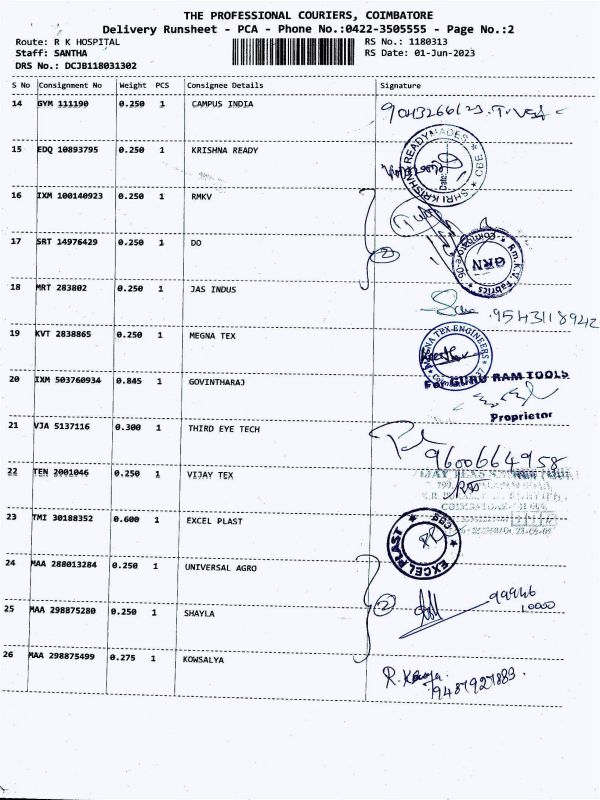 THE PROFESSIONAL COURIERS, COIMBATORE
Delivery Runsheet - PCA - Phone No.:0422-3505555 - Page No.:2
Route: R K HOSPITAL RS No.: 1180313
Staff: SANTHA RS Date: 01-Jun-2023
DRS No.: DCJB118031302
S No Consignment No Weight PCS Consignee Details Signature
14 GYM 111190 0.250 1 CAMPUS INDIA
15 EDQ 10893795 0.250 1 KRISHNA READY
SHRI KRISHNA READYMADES ★ CBE ★
Date:
16 IXM 100140923 0.250 1 RMKV
17 SRT 14976429 0.250 1 DO
2
Rm.K.V. Fabrics
GRN
18 MRT 283802 0.250 1 JAS INDUS
9543118942
19 KVT 2838865 0.250 1 MEGNA TEX
MEGNA TEX ENGINEERS
20 IXM 503760934 0.845 1 GOVINTHARAJ
For GURU RAM TOOLS
Proprietor
21 VJA 5137116 0.300 1 THIRD EYE TECH
9600664958
22 TEN 2001046 0.250 1 VIJAY TEX
23 TMI 30188352 0.600 1 EXCEL PLAST
EXCEL PLAST ★ CBE ★
24 MAA 288013284 0.250 1 UNIVERSAL AGRO
2
99946
10000
25 MAA 298875280 0.250 1 SHAYLA
26 MAA 298875499 0.275 1 KOWSALYA
9487927889.